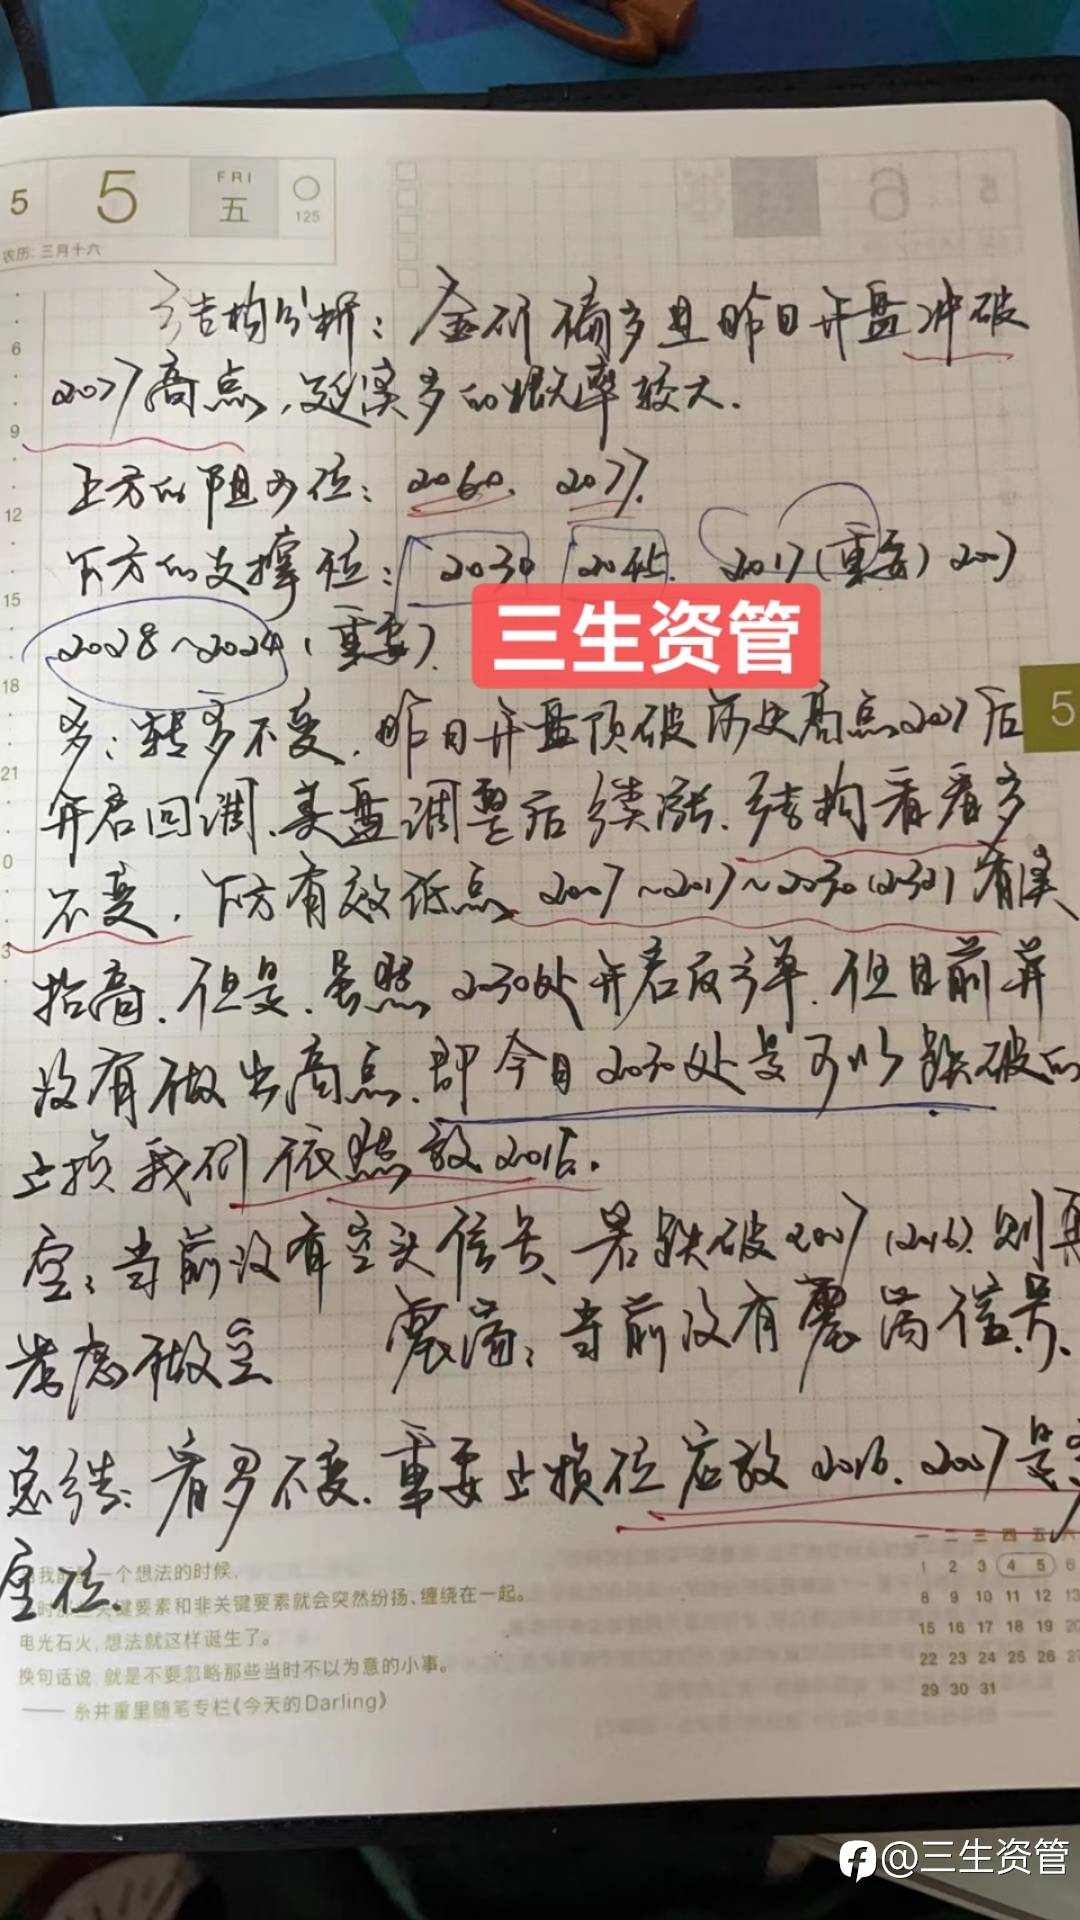 5
5
FRI
五
125
农历：三月十六
结构分析：金价偏多且昨日开盘冲破
2077高点，延续多的概率较大.
上方的阻力位：2060. 2077.
下方的支撑位：2030 2045. 2017（重要）2007
2028~2024（重要）.
三生资管
多：转多不变.昨日开盘顶破历史高点2077后
开启回调、美盘调整后续涨.结构看看多
不变，下方有效低点 2007~2017~2030(2032)有续
抬高.但是.虽然 2030处开启反弹.但目前并
没有做出高点.即今日2030处是可以跌破的
止损我们依照放2015.
空：当前没有空头信号、若跌破2007（2016）.则再
考虑做空 震荡：当前没有震荡信号.
总结：看多不变.重要止损位应放 2016. 2007是多
空位.
一个想法的时候，
键要素和非关键要素就会突然纷扬、缠绕在一起。
电光石火，想法就这样诞生了。
换句话说，就是不要忽略那些当时不以为意的小事。
—— 糸井重里随笔专栏《今天的Darling》
6
9
12
15
18
21
0
3
5
一 二 三 四 五 六
1 2 3 4 5 6
8 9 10 11 12 13
15 16 17 18 19 20
22 23 24 25 26 27
29 30 31
@三生资管